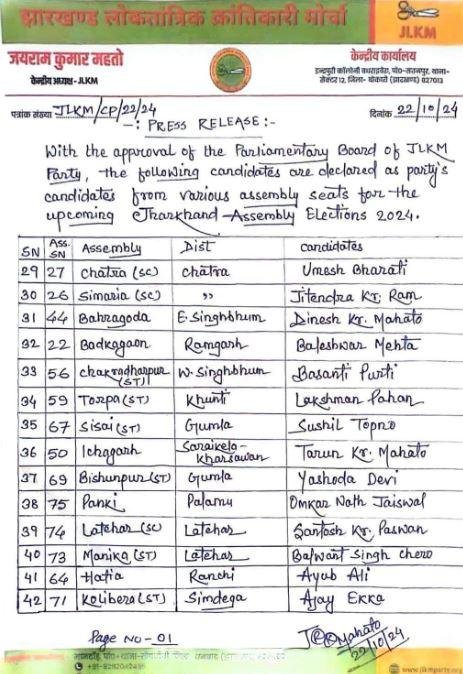 झारखण्ड लोकतांत्रिक क्रांतिकारी मोर्चा
JLKM
जयराम कुमार महतो
केन्द्रीय अध्यक्ष - JLKM
केन्द्रीय कार्यालय
पत्रांक संख्या JLKM/CP/22/24
दिनांक 22/10/24
-: PRESS RELEASE:-
With the approval of the Parliamentary Board of JLKM
Party, the following candidates are declared as party's
candidates from various assembly seats for the
upcoming Jharkhand Assembly Elections 2024.
SN Ass. SN Assembly Dist candidates
29 27 Chatra (SC) Chatra Umesh Bharati
30 26 Simaria (SC) " Jitendra Kr. Ram
31 44 Bahragoda E. Singhbhum Dinesh Kr. Mahato
32 22 Badkagaon Ramgarh Baleshwar Mehta
33 56 Chakradharpur (ST) W. Singhbhum Basanti Purti
34 59 Torpa (ST) Khunti Lakshman Pahan
35 67 Sisai (ST) Gumla Sushil Topno
36 50 Ichagarh Saraikela-Kharsawan Tarun Kr. Mahato
37 69 Bishunpur (ST) Gumla Yashoda Devi
38 75 Panki Palamu Omkar Nath Jaiswal
39 74 Latehar (SC) Latehar Santosh Kr. Paswan
40 73 Manika (ST) Latehar Balwant Singh Chero
41 64 Hatia Ranchi Ayub Ali
42 71 Kolibera (ST) Simdega Ajay Ekka
Page No-01
22/10/24